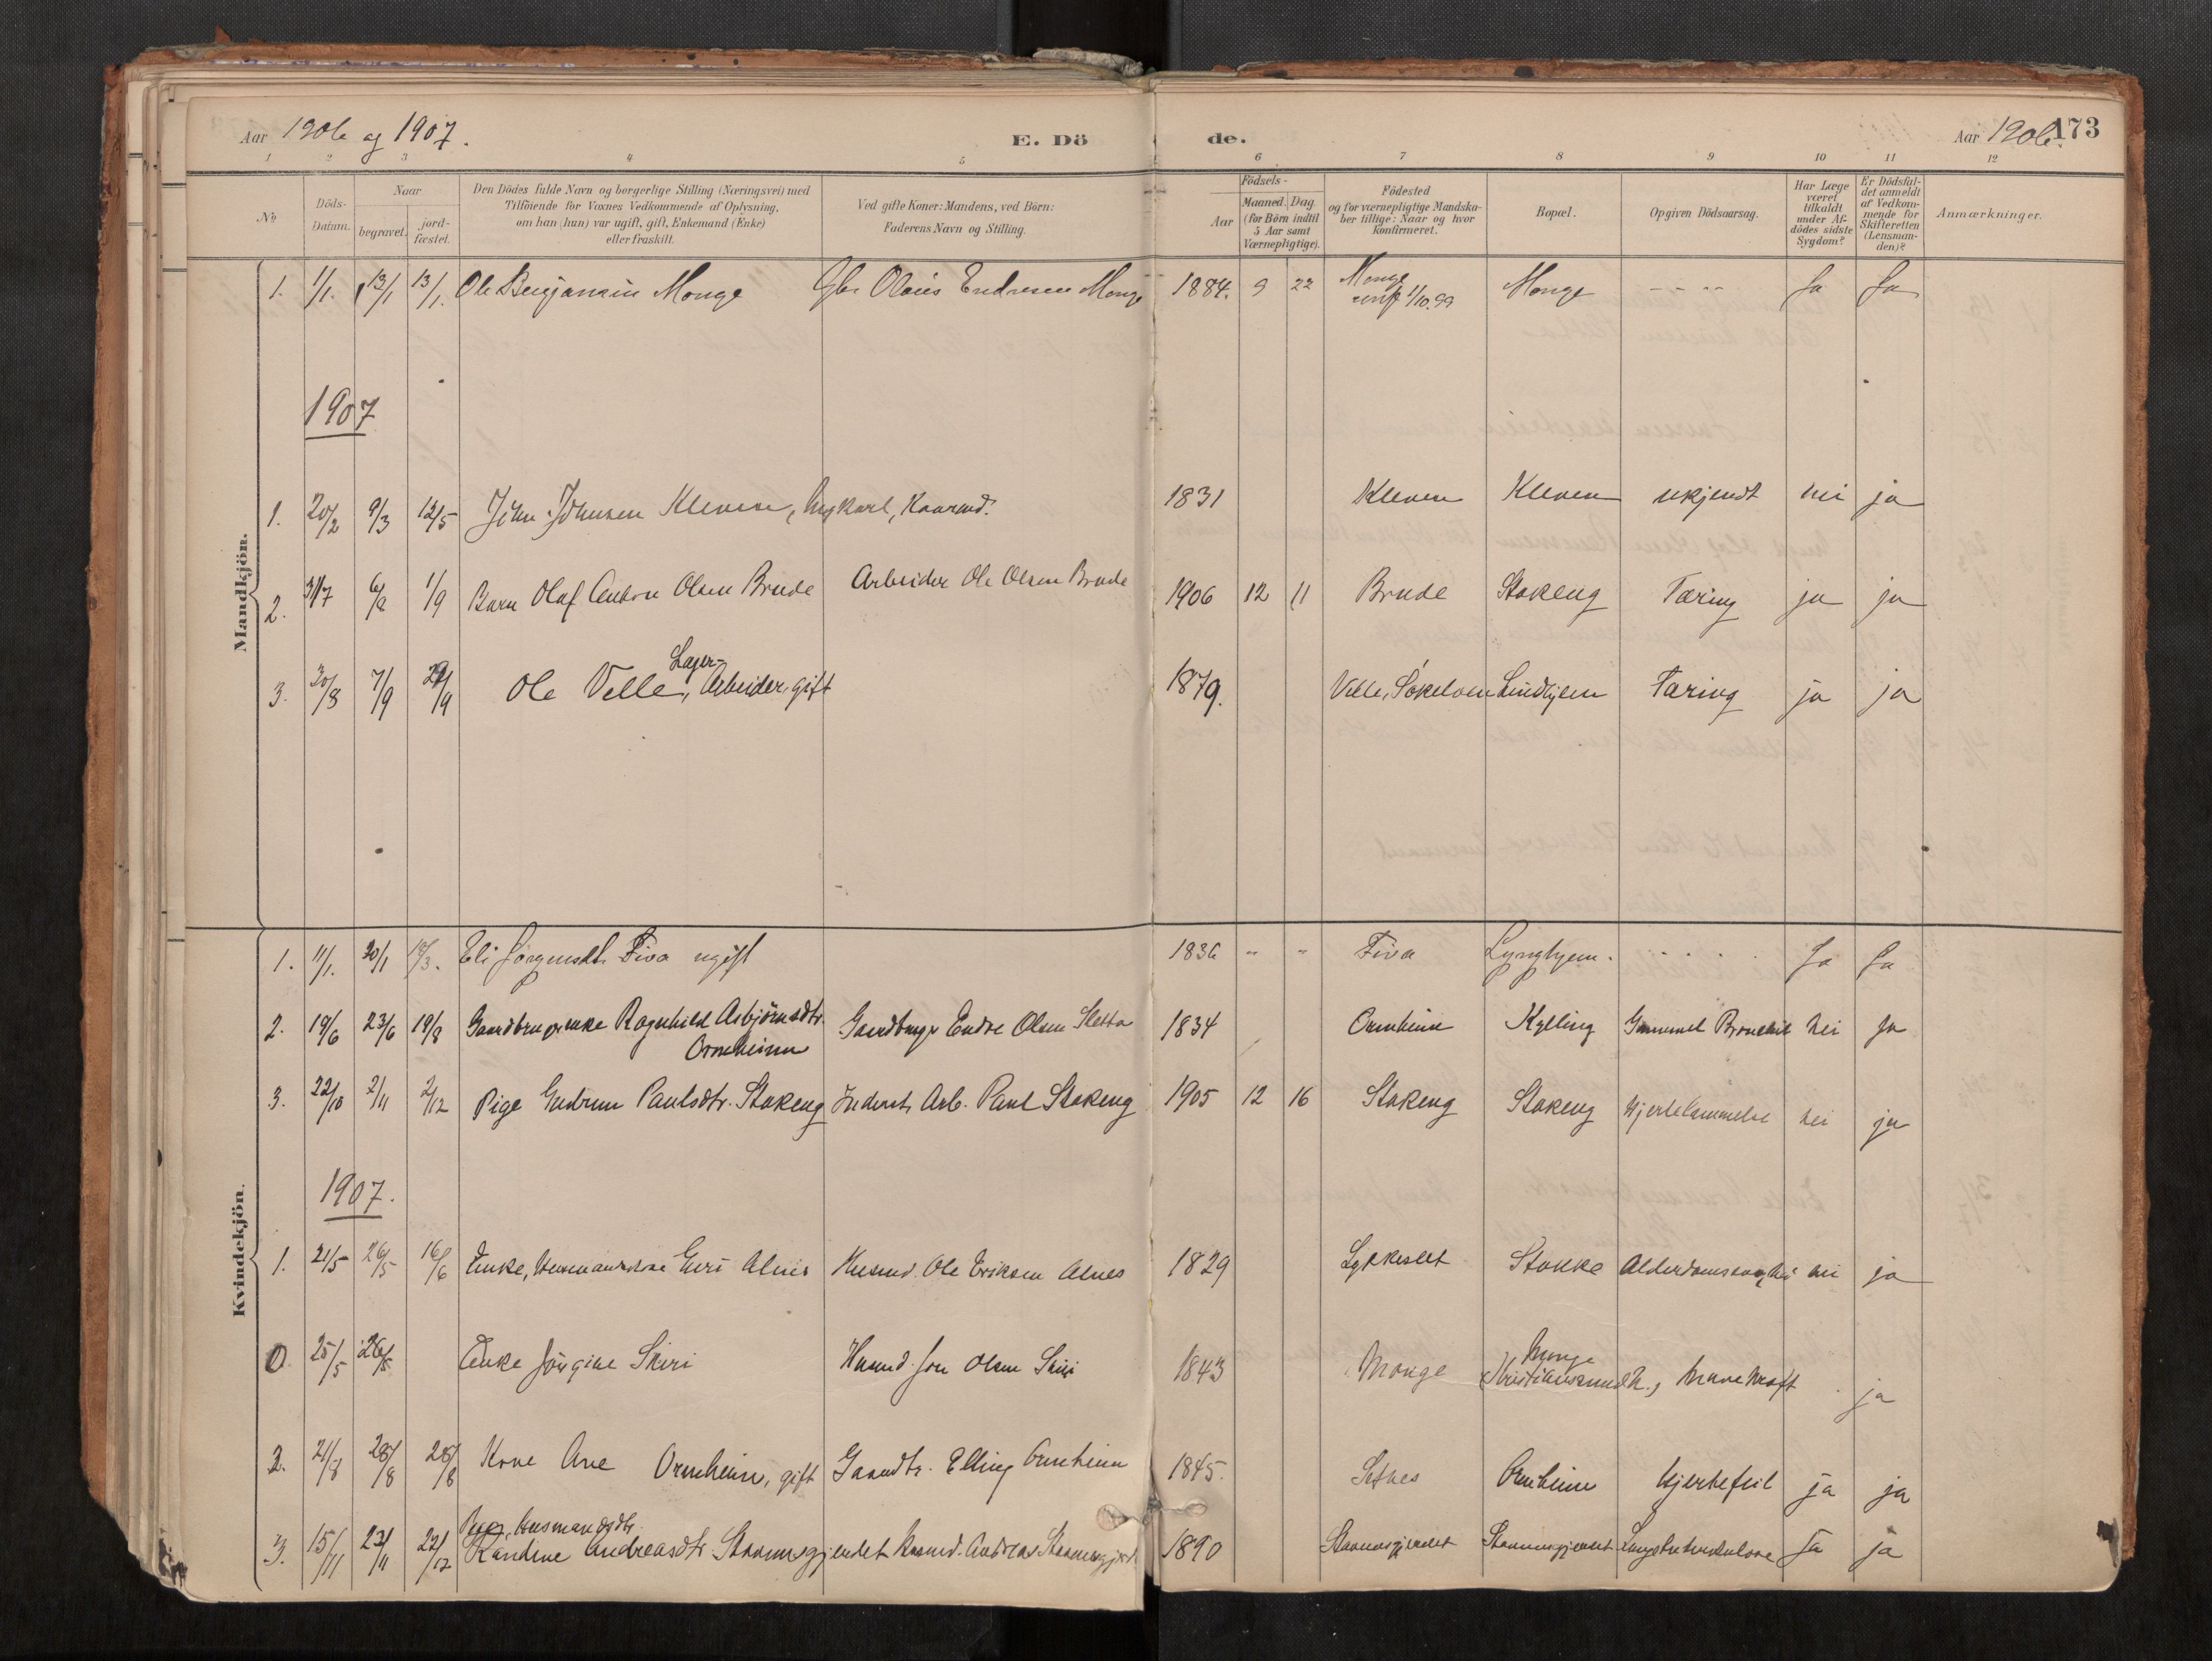 Aar 1906 og 1907.
E. Döde.
Aar 1906. 173
1 2 3 4 5 6 7 8 9 10 11 12
No.
Döds-Datum.
Naar
begravet.
jord-fæstet.
Den Dödes fulde Navn og borgerlige Stilling (Næringsvei) med
Tilföiende for Voxnes Vedkommende af Oplysning,
om han (hun) var ugift, gift, Enkemand (Enke)
eller fraskilt.
Ved gifte Koner: Mandens, ved Börn:
Faderens Navn og Stilling.
Födsels-
Aar
Maaned. Dag
(for Börn indtil
5 Aar samt
Værnepligtige).
Födested
og for værnepligtige Mandska-
ber tillige: Naar og hvor
Konfirmeret.
Bopæl.
Opgiven Dödsaarsag.
Har Læge
været
tilkaldt
under Af-
dödes sidste
Sygdom?
Er Dödsfal-
det anmeldt
af Vedkom-
mende for
Skifteretten
(Lensman-
den)?
Anmærkninger.
Mandkjön.
1. 1/1. 13/1 13/1. Ole Benjamin Monge Gbr Olaus Endresen Monge 1884. 9 22 Monge konf 1/10.99 Monge - - - - Ja Ja
1907
1. 20/2 9/3 12/5 John Johnsen Kleven, Ungkarl, 1831 Kleven Kleven ukjendt nei ja
2. 31/7 6/8 1/9 Barn Olaf Anton Olsen Brude Arbeider Ole Olsen Brude 1906 12 11 Brude Stokeng Tæring ja ja
3. 30/8 7/9 29/9 Ole Velle, Lager-Arbeider, gift 1879. Velle, Søkelven Lindhjem Tæring ja ja
Kvindekjön.
1. 11/1. 20/1 18/3. Eli Jørgensdt. Fiva ugift 1836 " " Fiva Lyngheim. . . . . Ja Ja
2. 19/6 23/6 19/8 Gaardbrugerenke Ragnhild Asbjörnsdtr. Ormheim Gaardbruger Endre Olsen Sletta 1834 Ormheim Kylling Gammel Bronchit nei ja
3. 22/10 2/11 2/12 Pige Gudrun Paulsdtr. Stokeng Inderst, Arb. Paul Stokeng 1905 12 16 Stokeng Stokeng Hjertelammelse nei ja
1907.
1. 21/5 26/5 16/6 Enke, Husmandskone Guri Alnes Husmd. Ole Eriksen Alnes 1829 Lykkeslet Stokke nei ja
0. 25/5 26/5 Enke Jörgine Skiri Husmd. Jon Olsen Skiri 1843 Monge Monge Kristiansund N., Mavekræft ja
2. 21/8 28/8 28/8 Kone Ane Ormheim, gift Gaardbr. Elling Ormheim 1845. Setnes Ormheim Hjertefeil ja ja
3. 15/11 23/11 22/12 Pige, Husmandsdtr. Kandine Andreasdtr. Stavnesgjerdet Husmd. Andreas Stavnesgjerd. 1890 Stavnesgjerdet Stavnesgjerdet Lungetuberkulose Ja ja